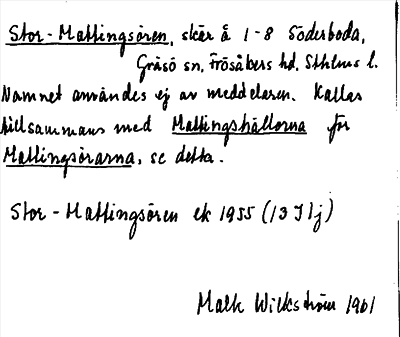 Stor-Mattingsören, skär å 1-8 Söderboda,
Gräsö sn, Frösåkers hd, Sthlms l.
Namnet användes ej av meddelaren. Kallas
tillsammans med Mattingshällorna för
Mattingsörarna, se detta.
Stor-Mattingsören ek 1955 (13 I 1j)
Malk Wikström 1961